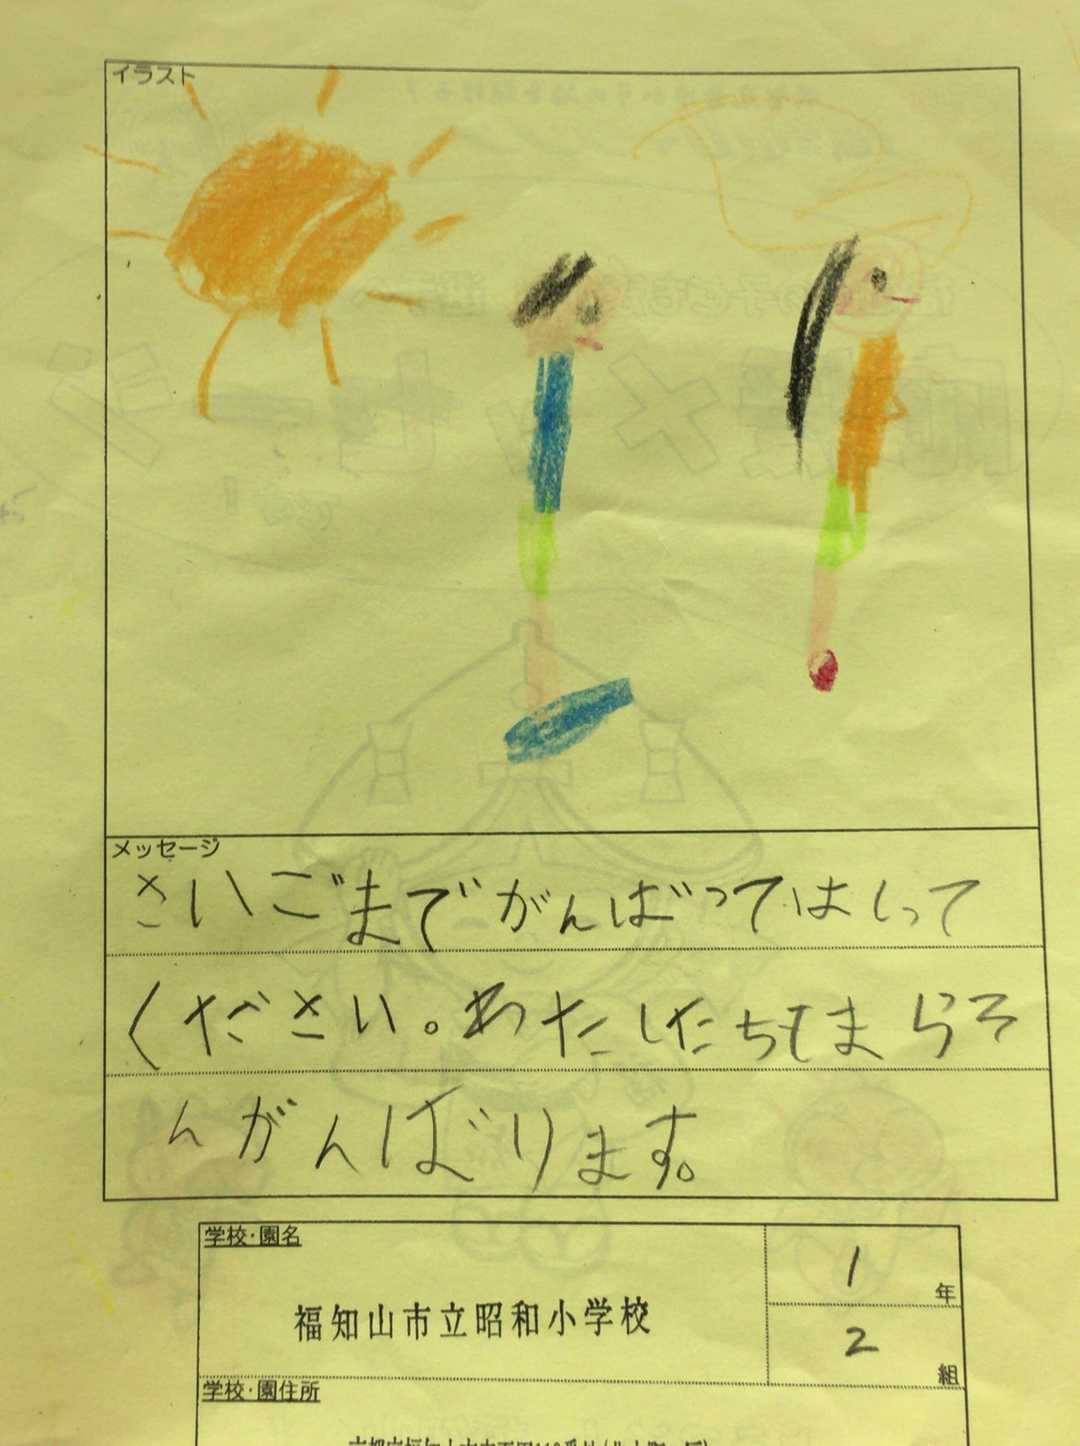 イラスト
メッセージ
さいごまでがんばってはしって
ください。わたしたちもまらそ
んがんばります。
学校・園名
福知山市立昭和小学校
1 年
2 組
学校・園住所